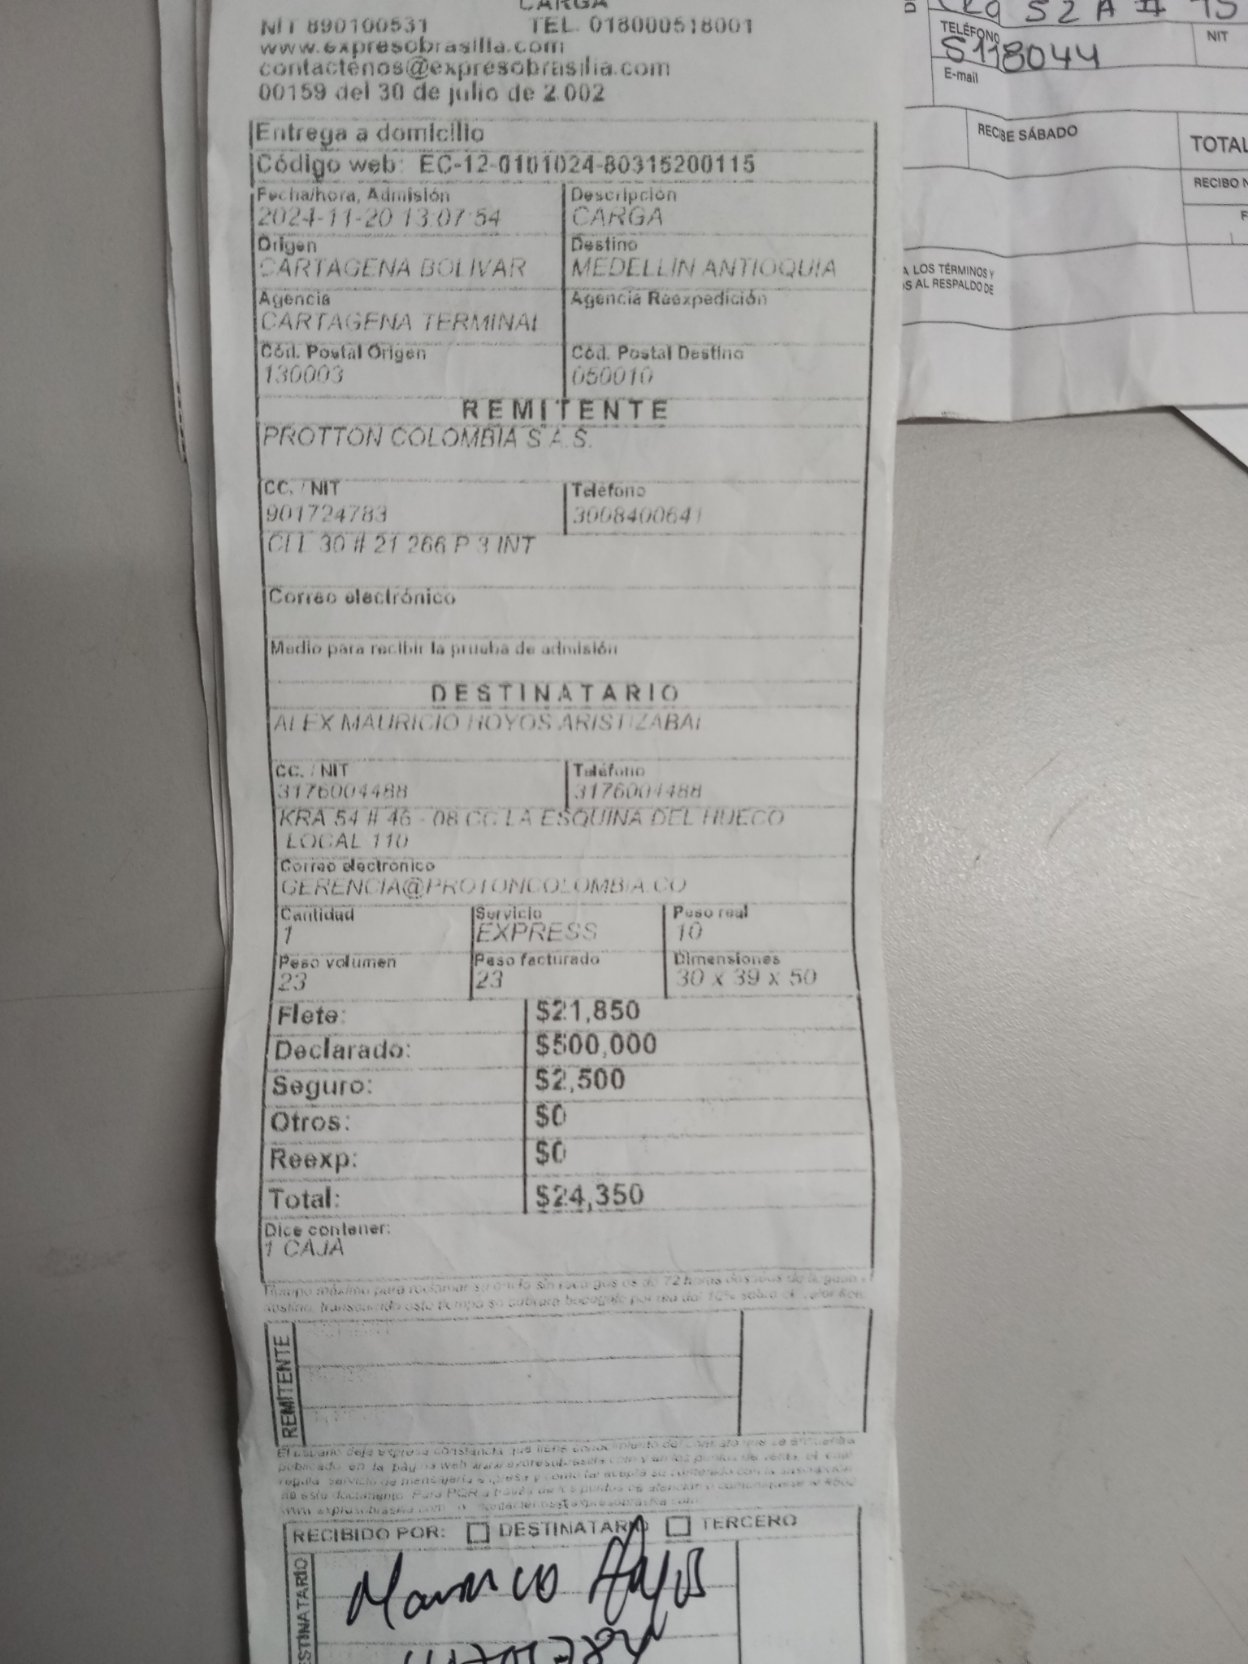 CARGA
NIT 890100531 TEL. 018000518001
www.expresobrasilia.com
contactenos@expresobrasilia.com
00159 del 30 de julio de 2.002
Entrega a domicilio
Código web: EC-12-0101024-80315200115
Fecha/hora, Admisión Descripción
2024-11-20 13:07:54 CARGA
Origen Destino
CARTAGENA BOLIVAR MEDELLIN ANTIOQUIA
Agencia Agencia Reexpedición
CARTAGENA TERMINAL
Cód. Postal Origen Cód. Postal Destino
130003 050010
REMITENTE
PROTTON COLOMBIA S.A.S.
CC. / NIT Teléfono
901724783 3008400641
CLL 30 # 21 266 P 3 INT
Correo electrónico
Medio para recibir la prueba de admisión
DESTINATARIO
ALEX MAURICIO HOYOS ARISTIZABAL
CC. / NIT Teléfono
3176004488 3176004488
KRA 54 # 46 - 08 CC LA ESQUINA DEL HUECO
LOCAL 110
Correo electrónico
GERENCIA@PROTONCOLOMBIA.CO
Cantidad Servicio Peso real
1 EXPRESS 10
Peso volumen Peso facturado Dimensiones
23 23 30 x 39 x 50
Flete: $21,850
Declarado: $500,000
Seguro: $2,500
Otros: $0
Reexp: $0
Total: $24,350
Dice contener:
1 CAJA
REMITENTE
RECIBIDO POR: DESTINATARIO TERCERO
STINATARIO
Mauricio Hoyos
TELÉFONO NIT
5118044
E-mail
RECIBE SÁBADO
TOTAL
RECIBO N
F
A LOS TÉRMINOS Y
OS AL RESPALDO DE